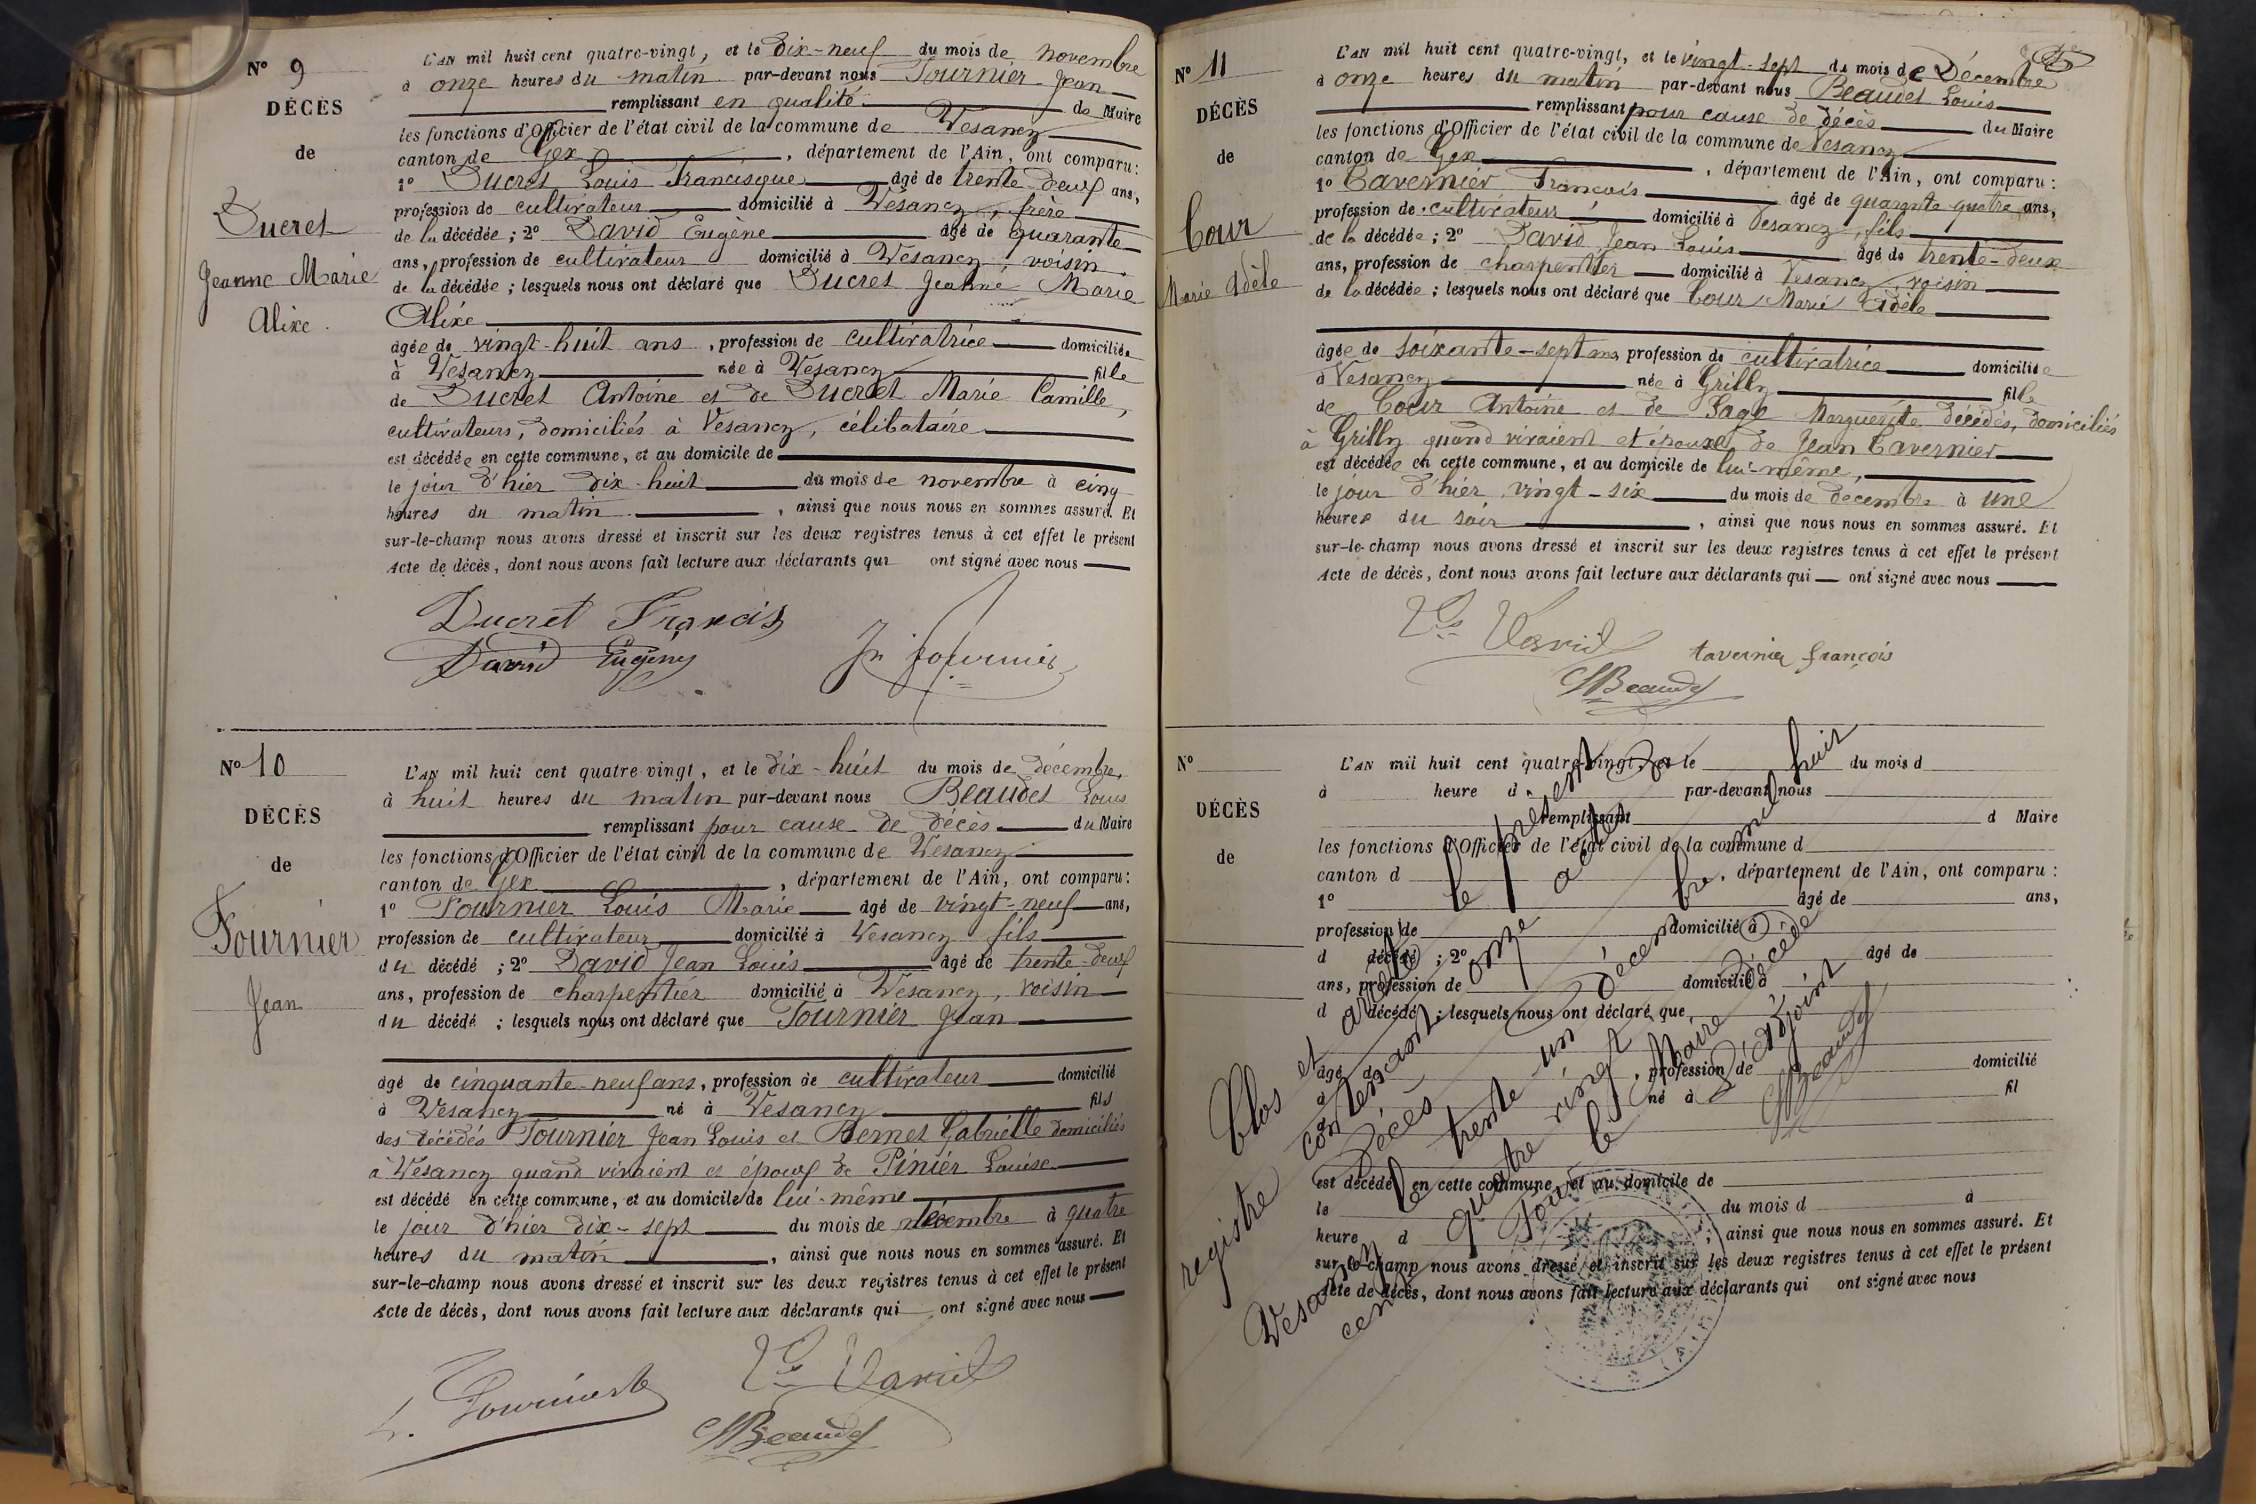 N° 9
DÉCÈS
de
Ducret
Jeanne Marie
Alixe.
L'AN mil huit cent quatre-vingt, et le dix-neuf du mois de novembre
à onze heures du matin par-devant nous Fournier Jean
remplissant en qualité de Maire
les fonctions d'Officier de l'état civil de la commune de Vesancy
canton de Gex, département de l'Ain, ont comparu:
1° Ducret Louis Francisque âgé de trente deux ans,
profession de cultivateur domicilié à Vesancy, frère
de la décédée; 2° David Eugène âgé de quarante
ans, profession de cultivateur domicilié à Vesancy, voisin
de la décédée; lesquels nous ont déclaré que Ducret Jeanne Marie
Alixe
âgée de vingt-huit ans, profession de cultivatrice domiciliée
à Vesancy née à Vesancy fille
de Ducret Antoine et de Ducret Marie Camille,
cultivateurs, domiciliés à Vesancy, célibataire
est décédée en cette commune, et au domicile de
le jour d'hier dix-huit du mois de novembre à cinq
heures du matin, ainsi que nous nous en sommes assuré. Et
sur-le-champ nous avons dressé et inscrit sur les deux registres tenus à cet effet le présent
Acte de décès, dont nous avons fait lecture aux déclarants qui ont signé avec nous
Ducret Francis
David Eugène
Jn fournier
N° 10
DÉCÈS
de
Fournier
Jean
L'AN mil huit cent quatre-vingt, et le dix-huit du mois de décembre,
à huit heures du matin par-devant nous Beaudet Louis
remplissant pour cause de décès du Maire
les fonctions d'Officier de l'état civil de la commune de Vesancy
canton de Gex, département de l'Ain, ont comparu:
1° Fournier Louis Marie âgé de vingt-neuf ans,
profession de cultivateur domicilié à Vesancy fils
du décédé; 2° David Jean Louis âgé de trente-deux
ans, profession de charpentier domicilié à Vesancy, voisin
du décédé; lesquels nous ont déclaré que Fournier Jean
âgé de cinquante-neuf ans, profession de cultivateur domicilié
à Vesancy né à Vesancy fils
des décédés Fournier Jean Louis et Bernet Gabrielle domiciliés
à Vesancy quand vivaient et époux de Pinier Louise
est décédé en cette commune, et au domicile de lui-même
le jour d'hier dix-sept du mois de décembre à quatre
heures du matin, ainsi que nous nous en sommes assuré. Et
sur-le-champ nous avons dressé et inscrit sur les deux registres tenus à cet effet le présent
Acte de décès, dont nous avons fait lecture aux déclarants qui ont signé avec nous
L. Fournier
David
Beaudet
N° 11
DÉCÈS
de
Cour
Marie Adèle
L'AN mil huit cent quatre-vingt, et le vingt-sept du mois de Décembre
à onze heures du matin par-devant nous Beaudet Louis
remplissant pour cause de décès du Maire
les fonctions d'Officier de l'état civil de la commune de Vesancy
canton de Gex, département de l'Ain, ont comparu:
1° Tavernier François âgé de quarante quatre ans,
profession de cultivateur domicilié à Vesancy, fils
de la décédée; 2° David Jean Louis âgé de trente-deux
ans, profession de charpentier domicilié à Vesancy, voisin
de la décédée; lesquels nous ont déclaré que Cour Marie Adèle
âgée de soixante-sept ans, profession de cultivatrice domiciliée
à Vesancy née à Grilly fille
de Cour Antoine et de Marguerite, décédés, domiciliés
à Grilly quand vivaient et épouse de Jean Tavernier
est décédée en cette commune, et au domicile de lui-même,
le jour d'hier vingt-six du mois de décembre à une
heure du soir, ainsi que nous nous en sommes assuré. Et
sur-le-champ nous avons dressé et inscrit sur les deux registres tenus à cet effet le présent
Acte de décès, dont nous avons fait lecture aux déclarants qui ont signé avec nous
David
tavernier françois
Beaudet
N°
DÉCÈS
de
L'AN mil huit cent quatre-vingt, et le du mois d
à heure d par-devant nous
remplissant d Maire
les fonctions d'Officier de l'état civil de la commune d
canton d, département de l'Ain, ont comparu:
1° âgé de ans,
profession de domicilié à
d décédé; 2° âgé de
ans, profession de domicilié à
d décédé; lesquels nous ont déclaré que
âgé de profession de domicilié
à né à fil
est décédé en cette commune, et au domicile de
le du mois d à
heure d, ainsi que nous nous en sommes assuré. Et
sur-le-champ nous avons dressé et inscrit sur les deux registres tenus à cet effet le présent
Acte de décès, dont nous avons fait lecture aux déclarants qui ont signé avec nous
Clos et arrêté le présent
registre contenant onze actes de
décès
Vesancy le trente un décembre mil huit
cent quatre vingt.
Pour le Maire décédé
L'adjoint
Beaudet